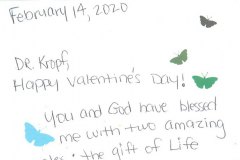 February 14, 2020
Dr. Kropf,
Happy Valentine's Day!
You and God have blessed
me with two amazing
the gift of Life